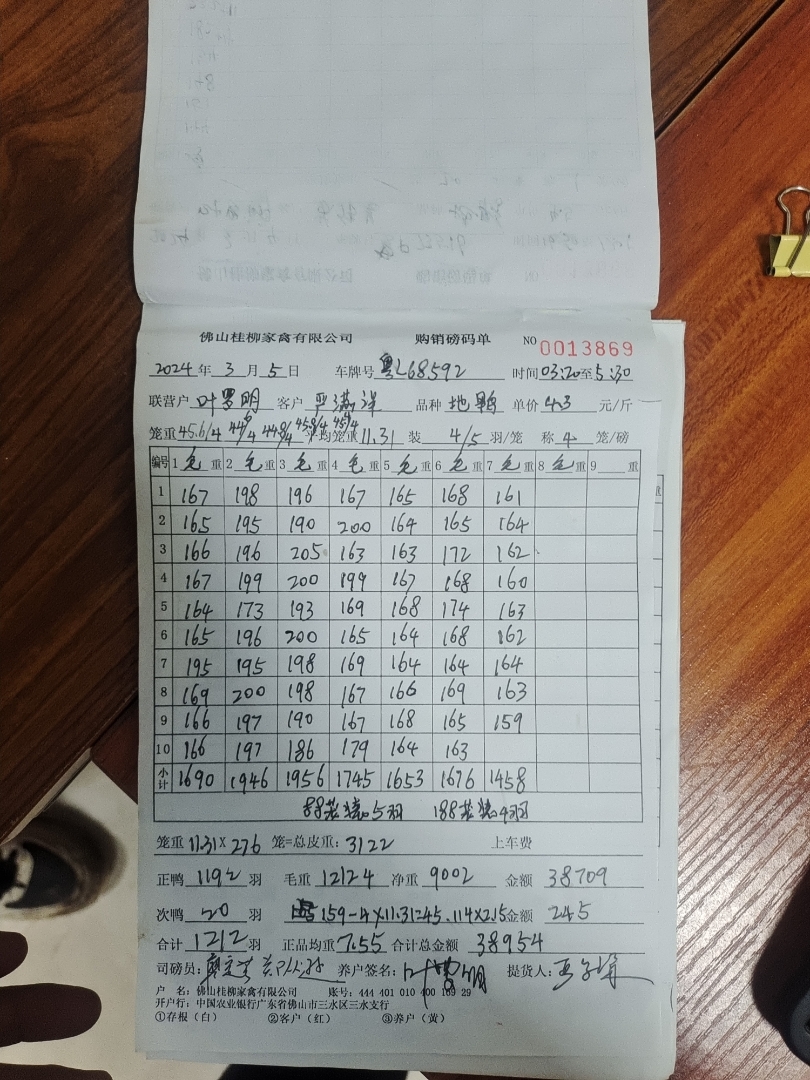 佛山桂柳家禽有限公司 购销磅码单 NO 0013869
2024年 3 月 5 日 车牌号 粤L68592 时间 03:20至5:30
联营户 叶罗明 客户 品种 地鸭 单价 4.3 元/斤
笼重 45.6/4 44.6/4 44.8/4 45.8/4 45/4 平均笼重 11.31 装 4/5 羽/笼 称 4 笼/磅
编号 1 毛 重 2 毛 重 3 毛 重 4 毛 重 5 毛 重 6 毛 重 7 毛 重 8 毛 重 9 重
1 167 198 196 167 165 168 161
2 165 195 190 200 164 165 164
3 166 196 205 163 163 172 162
4 167 199 200 199 167 168 160
5 164 173 193 169 168 174 163
6 165 196 200 165 164 168 162
7 195 195 198 169 164 164 164
8 169 200 198 167 166 169 163
9 166 197 190 167 168 165 159
10 166 197 186 179 164 163
小计 1690 1946 1956 1745 1653 1676 1458
88笼装5羽 188笼装4羽
笼重 11.31 × 276 笼=总皮重: 3122 上车费
正鸭 1192 羽 毛重 12124 净重 9002 金额 38709
次鸭 20 羽 159-4×11.31=45.114×2.15 金额 245
合计 1212 羽 正品均重 7.55 合计总金额 38954
司磅员: 养户签名: 叶罗明 提货人:
户 名: 佛山桂柳家禽有限公司 账号: 444 401 010 400 169 29
开户行: 中国农业银行广东省佛山市三水区三水支行
①存根(白) ②客户(红) ③养户(黄)